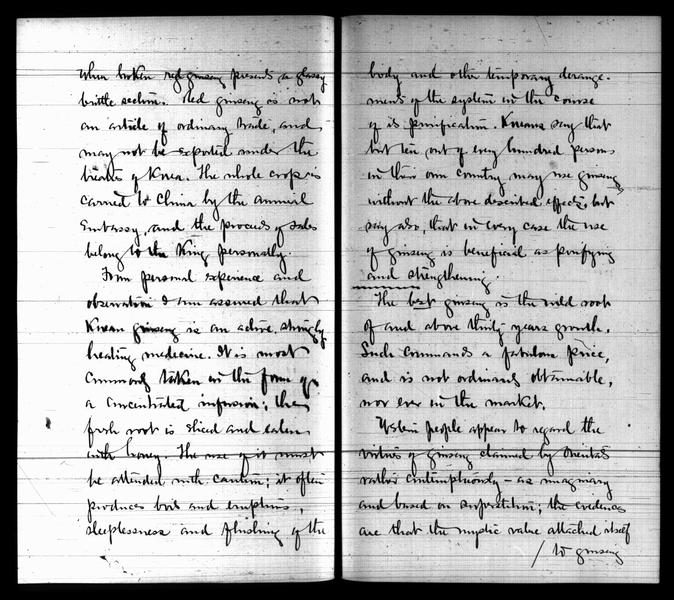 When broken red ginseng presents a glassy
brittle section. Red ginseng is not
an article of ordinary trade, and
may not be exported under the
treaties of Korea. The whole crop is
carried to China by the annual
Embassy, and the proceeds of sales
belong to the King personally.
From personal experience and
observation I am assured that
Korean ginseng is an active, strongly
heating medicine. It is most
commonly taken in the form of
a concentrated infusion; the
fresh root is sliced and eaten
with honey. The use of it must
be attended with caution; it often
produces boils and eruptions,
sleeplessness and flushing of the
body and other temporary derange-
ments of the system in the course
of its purification. Koreans say that
but ten out of every hundred persons
in their own country may use ginseng
without the above described effects, but
say also, that in every case the use
of ginseng is beneficial as purifying
and strengthening.
The best ginseng is the wild root
of and above thirty years growth.
Such commands a fabulous price,
and is not ordinarily obtainable,
nor ever in the market.
Western people appear to regard the
virtues of ginseng claimed by Orientals
rather contemptuously - as imaginary
and based on superstition; the evidences
are that the mystic value attached itself
/ to ginseng